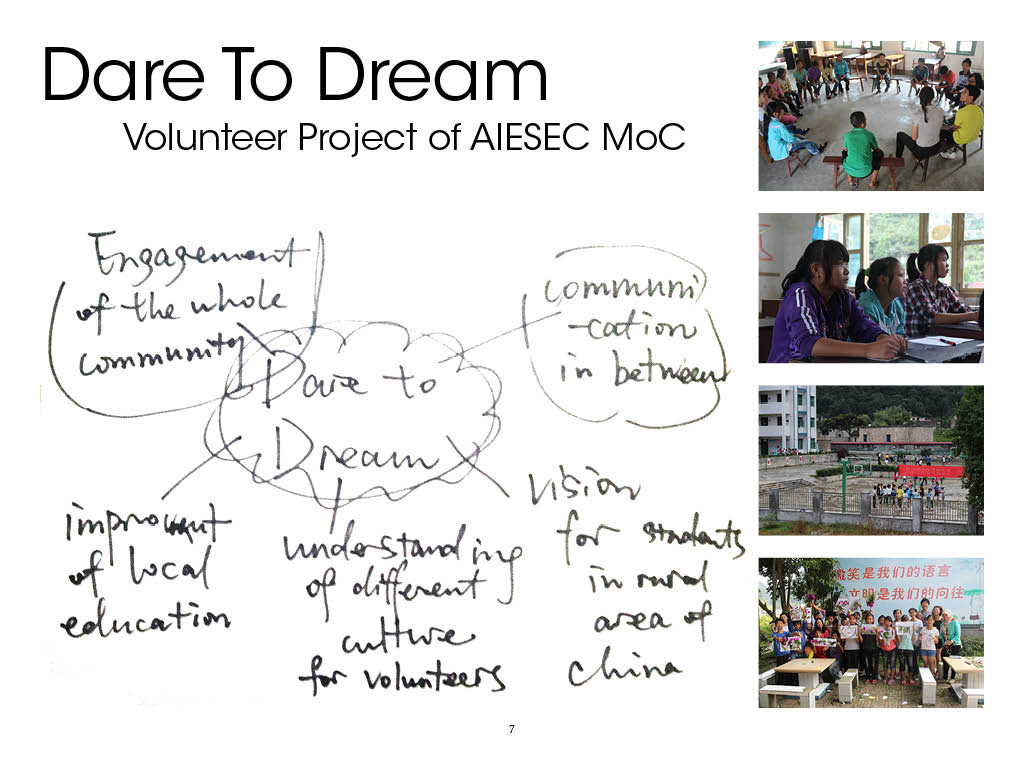 Dare To Dream
Volunteer Project of AIESEC MoC
Engagement
of the whole
community
communi
-cation
in between
Dare to
Dream
improvment
of local
education
understanding
of different
culture
for volunteers
vision
for students
in rural
area of
china
微笑是我们的语言
文明是我们的向往
7